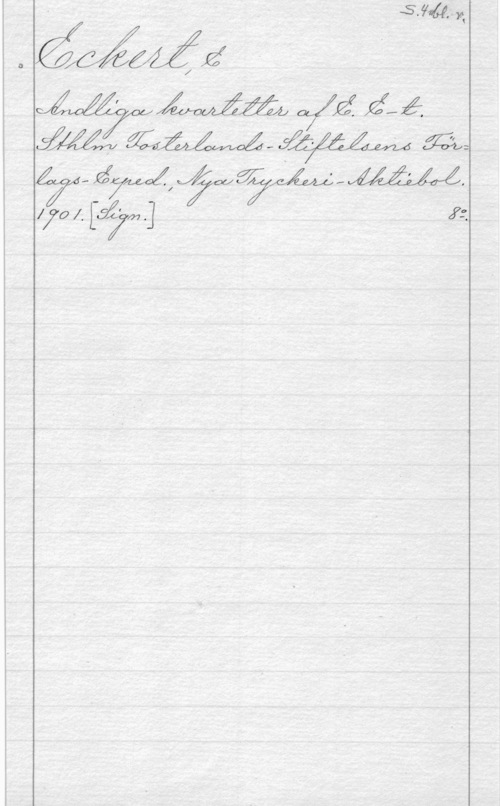 S. 4 bl. r.
Eckert, E
Andliga kvartetter af E. E-t.
Sthlm Fosterlands-Stiftelsens För=
lags-Exped., Nya Tryckeri-Aktiebol.
1901. [Sign.] 8º.